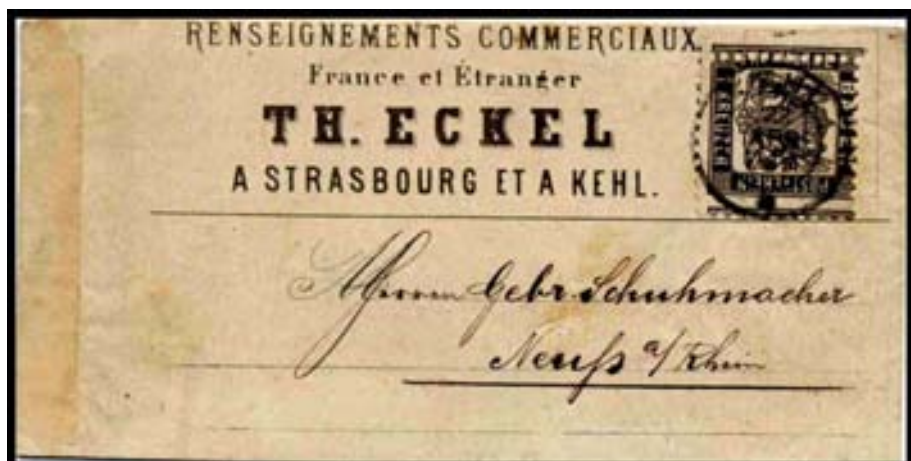 RENSEIGNEMENTS COMMERCIAUX.
France et Étranger
TH. ECKEL
A STRASBOURG ET A KEHL.
Herren Gebr. Schuhmacher
Neuß a/Rhein